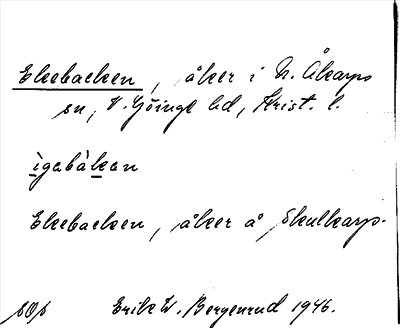 Ekebacken, åker i N. Åkarps
sn, V. Göinge hd, Krist. l.
ìgabàkan
Ekebacken, åker å Skulkarp.
Erik W. Bergenrud 1946.